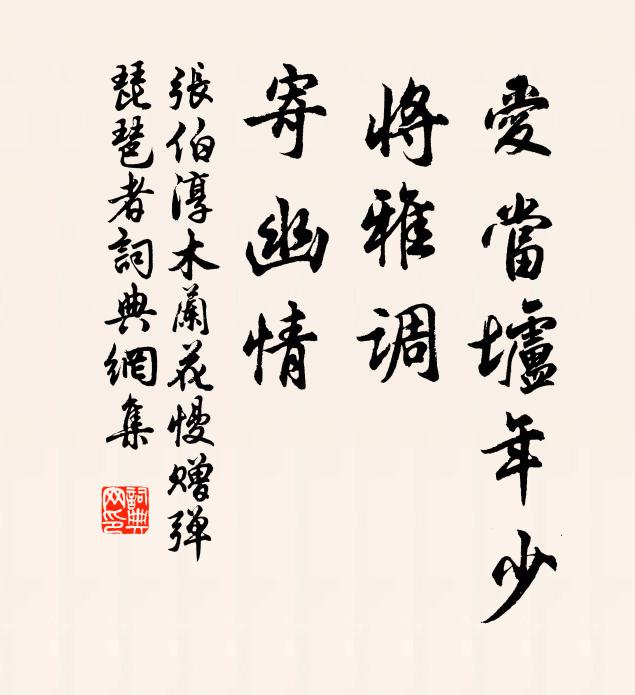 愛當壚年少
將雅調
寄幽情
張伯淳木蘭花慢赠弹
琵琶者詞典網集
詞典网印